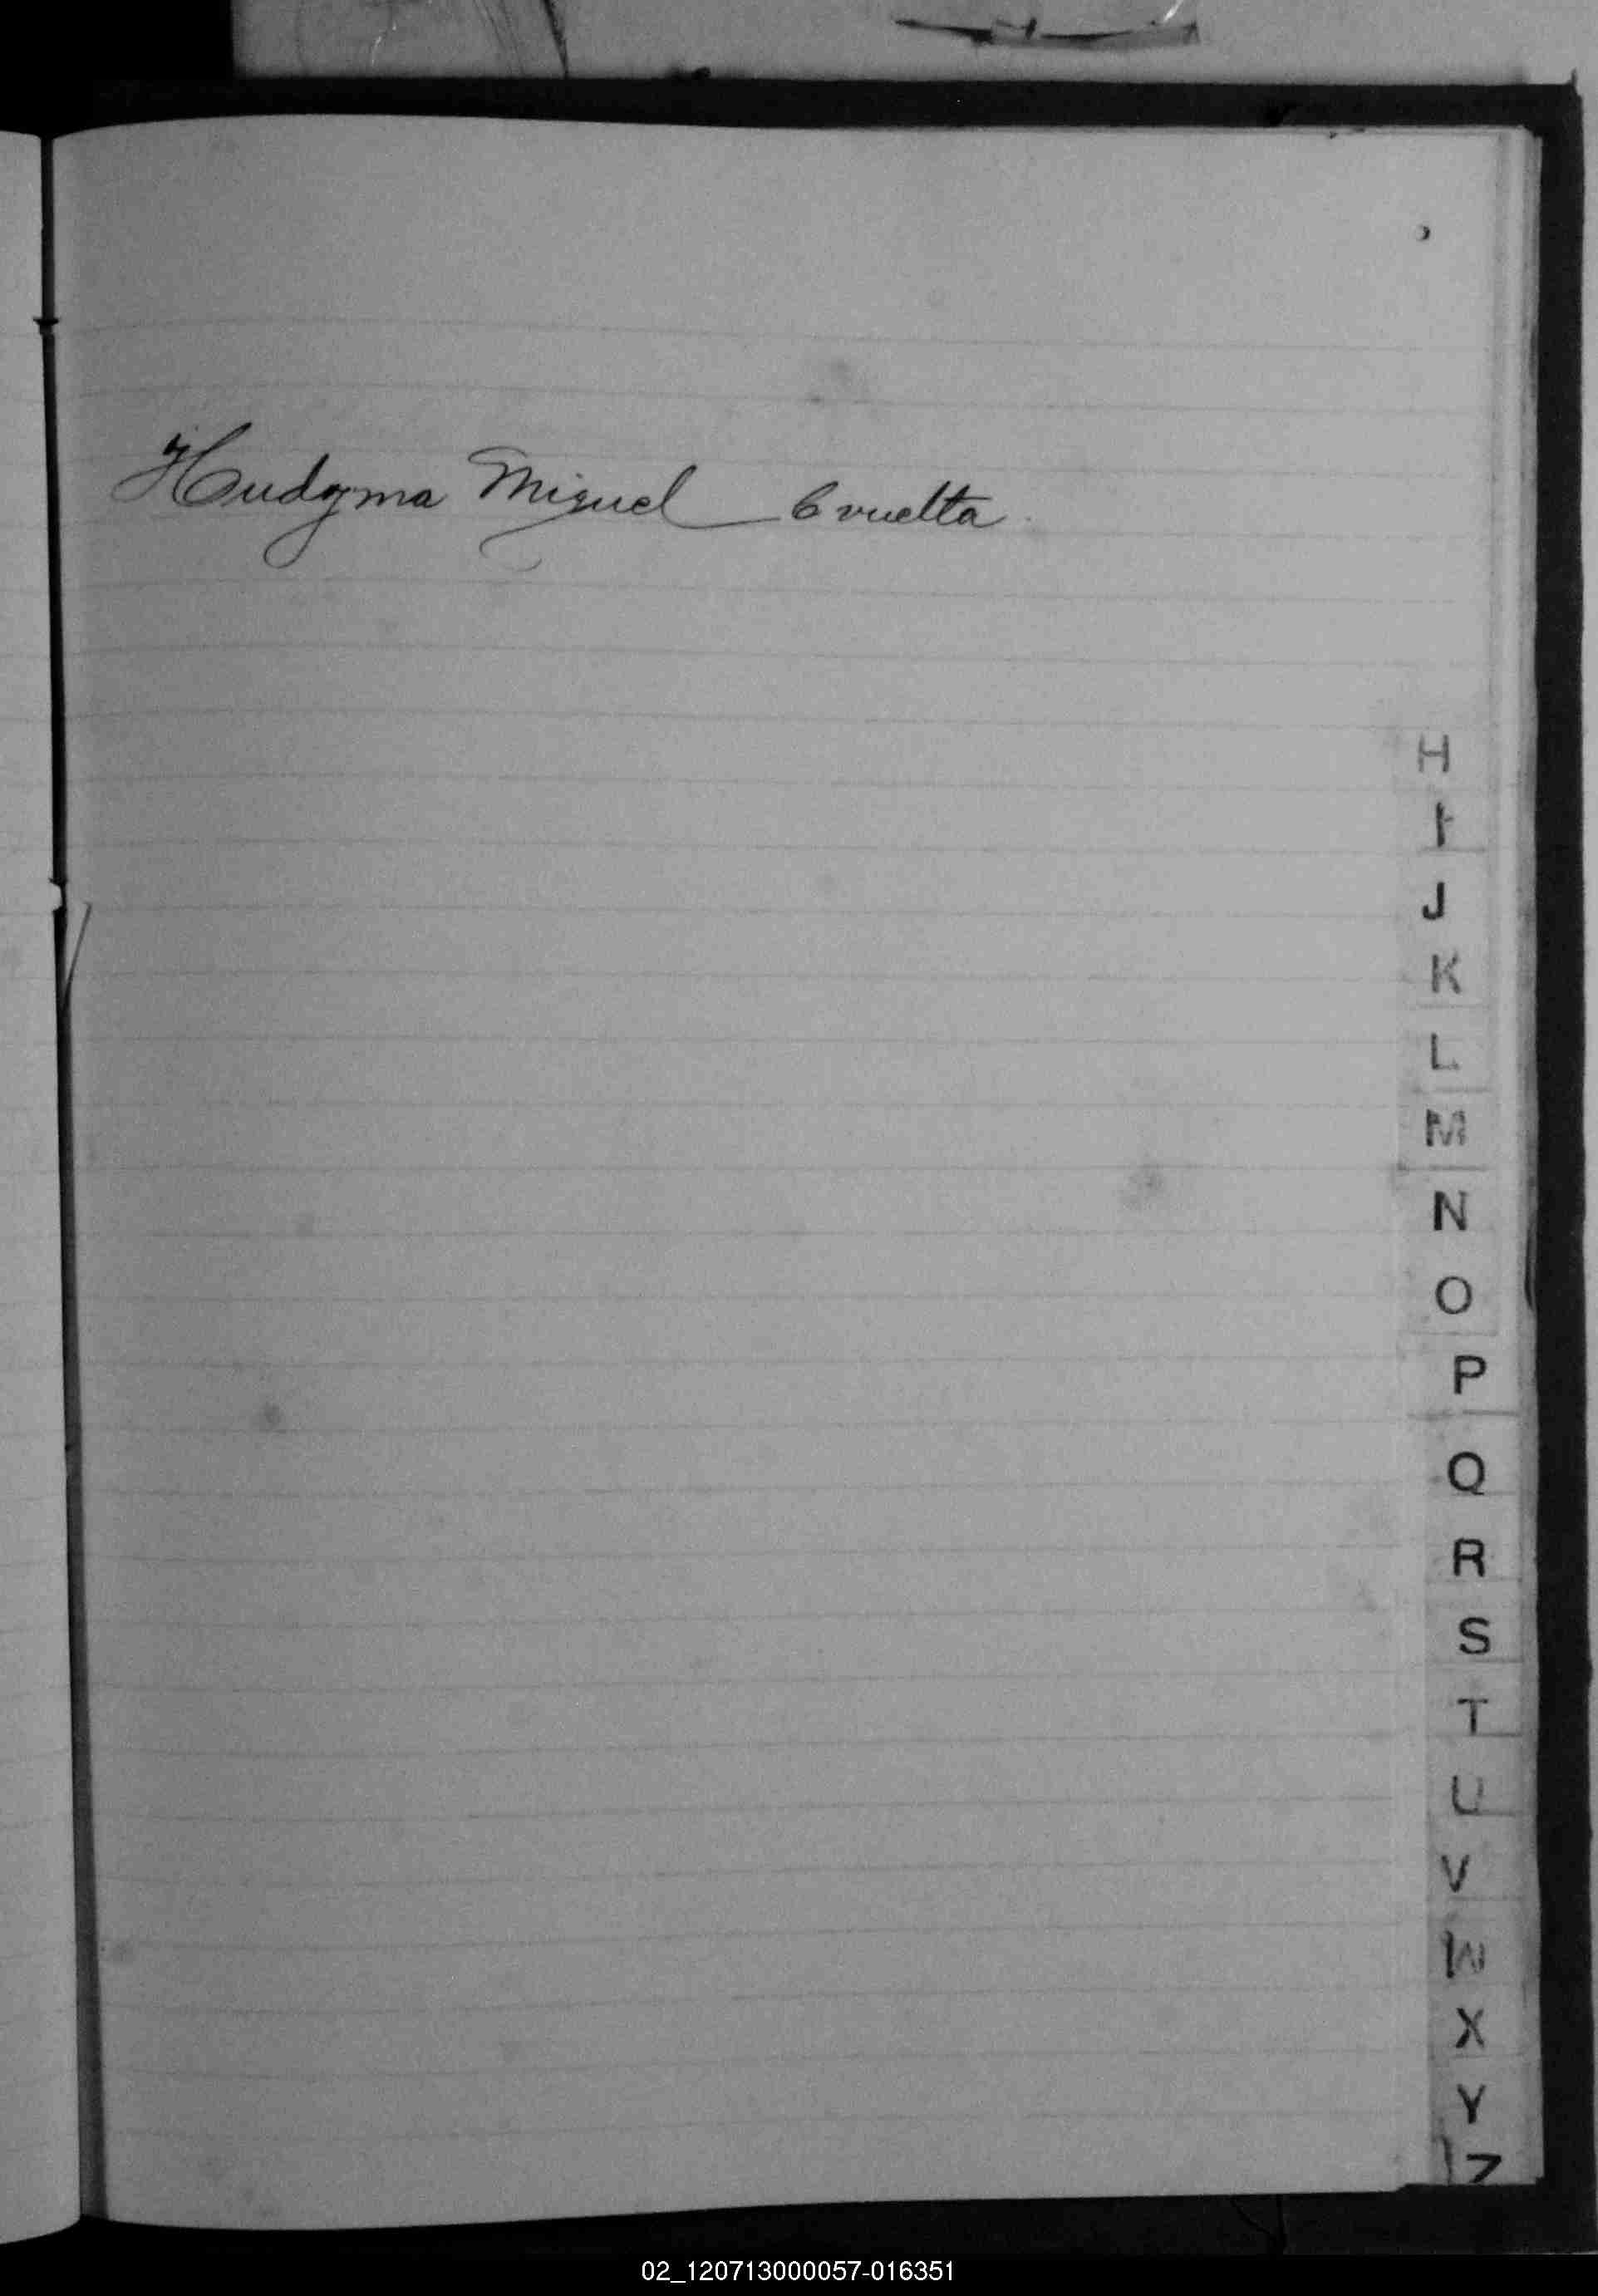 Hudyma Miguel 6 vuelta
H
I
J
K
L
M
N
O
P
Q
R
S
T
U
V
W
X
Y
Z
02_120713000057-016351